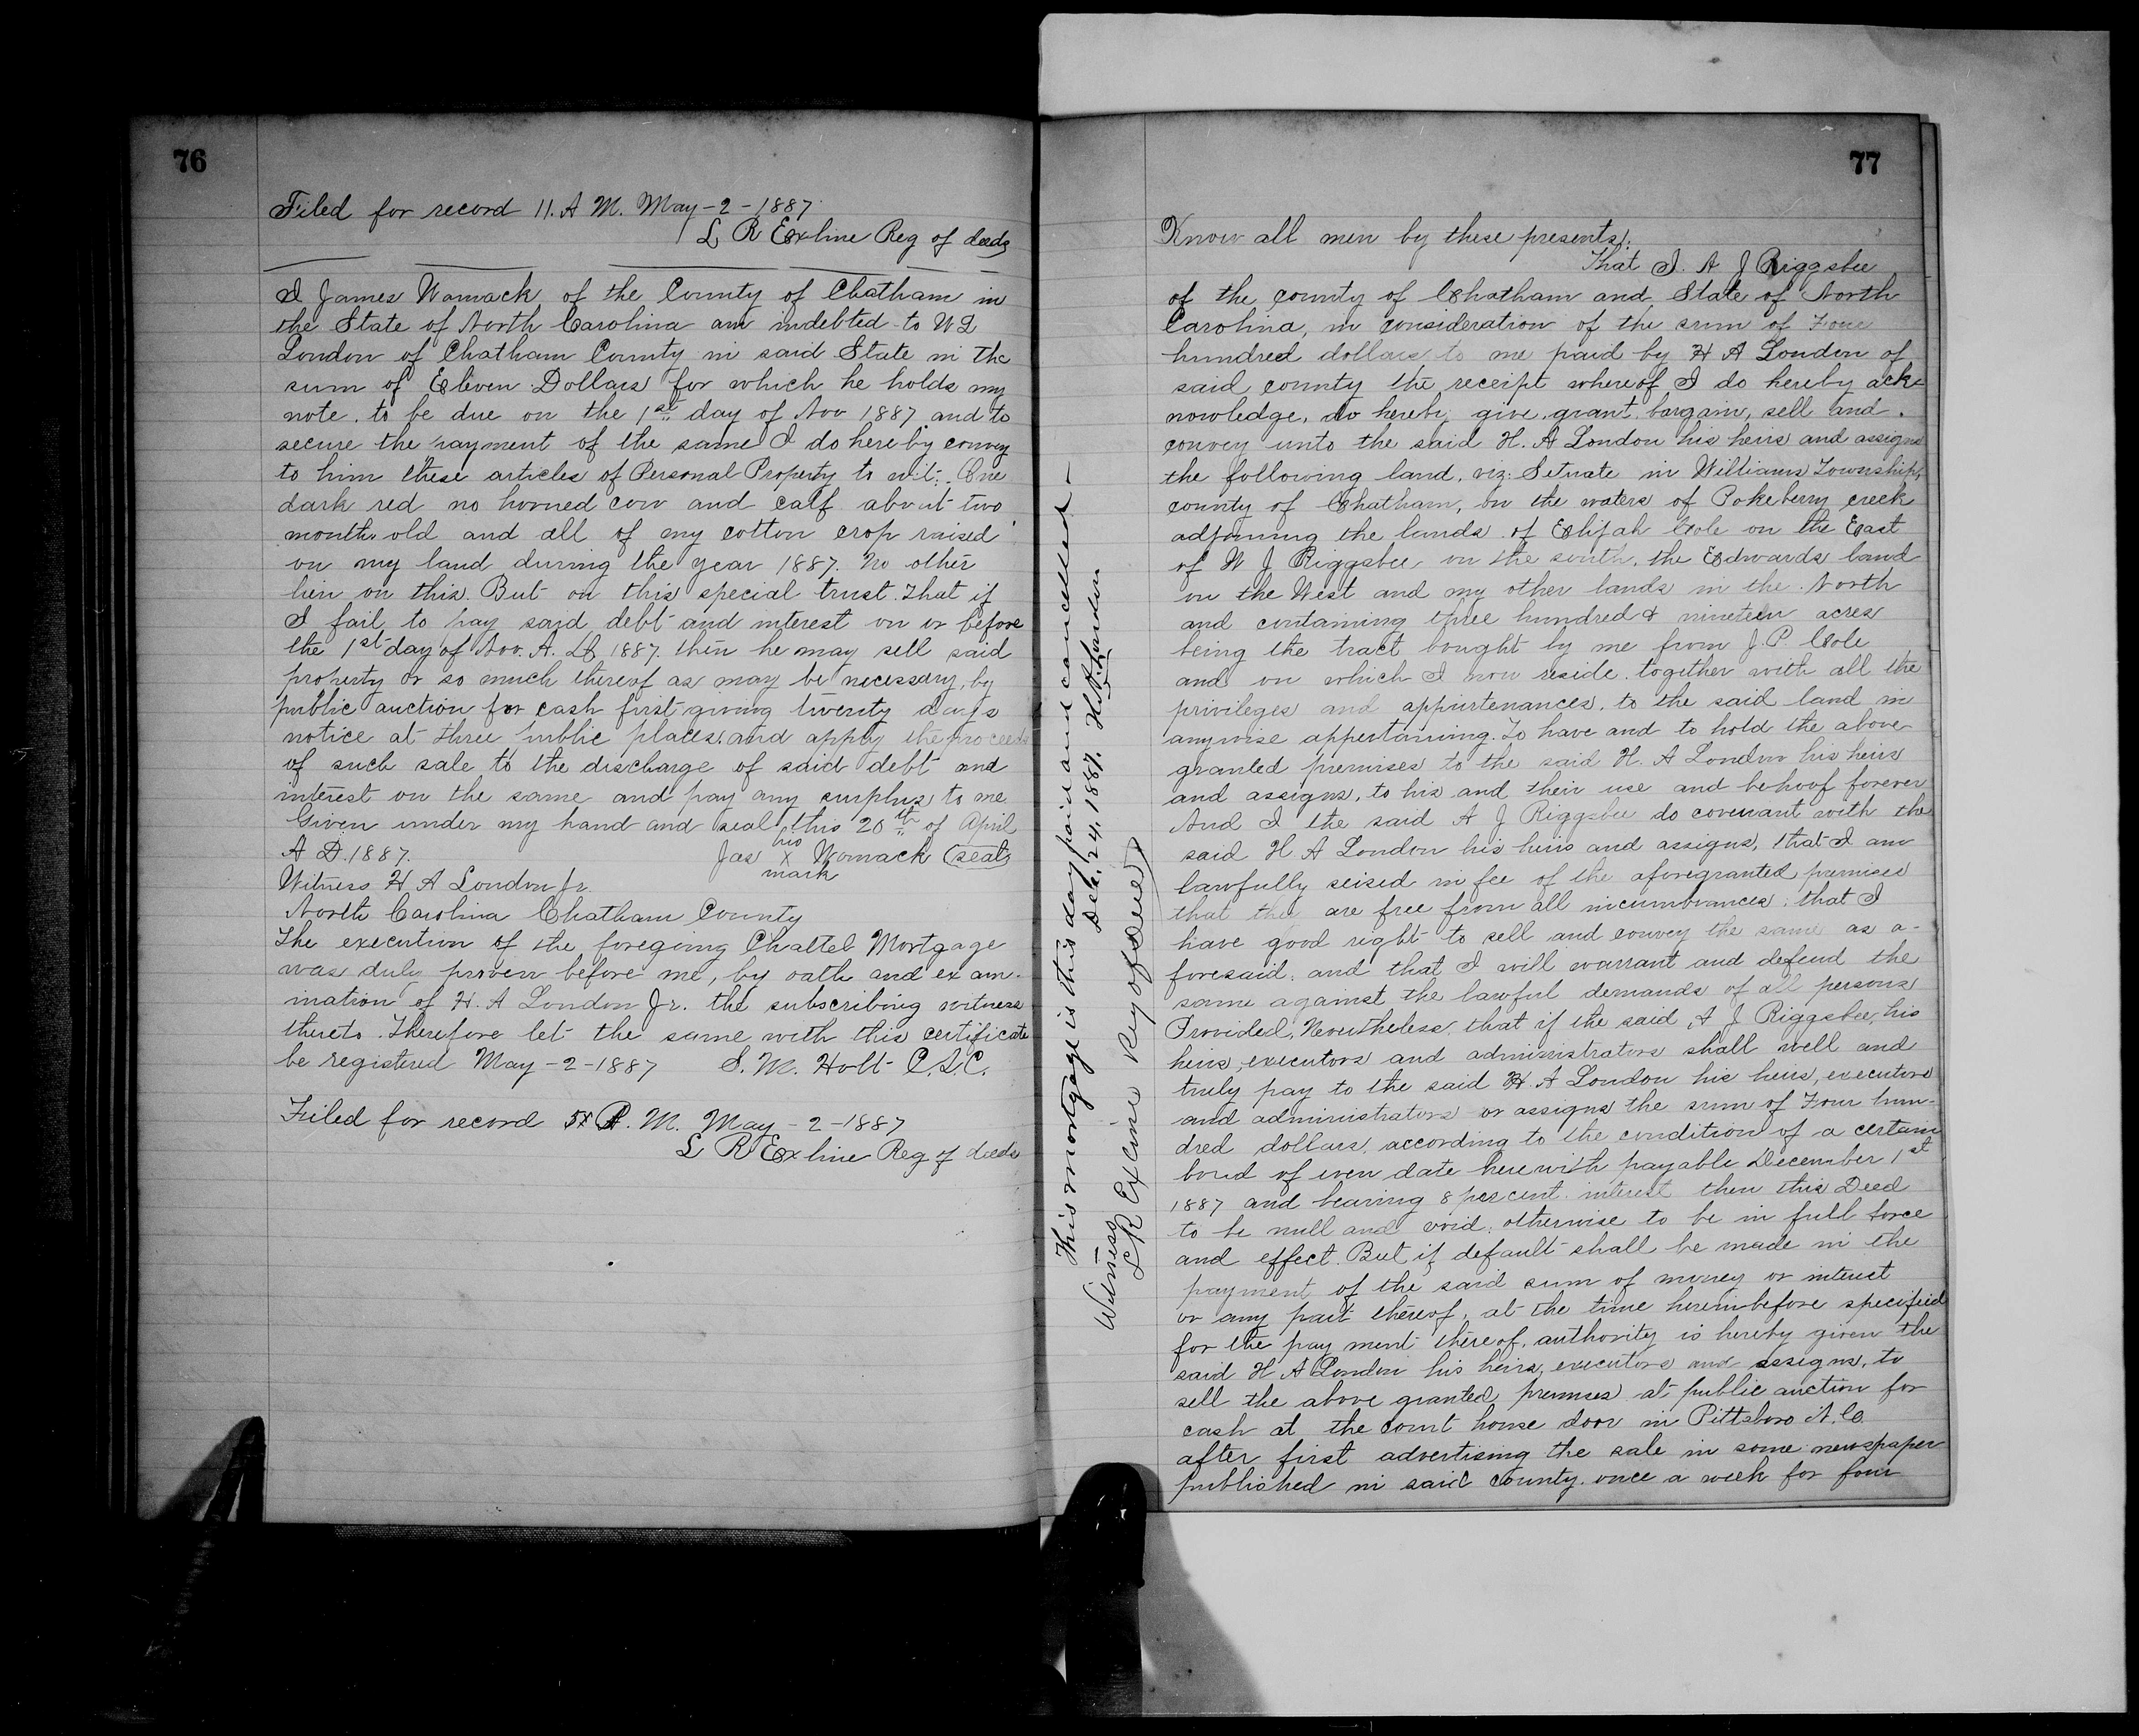 76
Filed for record 11. A M. May-2-1887
L R Exline Reg of deeds
I James Womack of the County of Chatham in
the State of North Carolina am indebted to W L
London of Chatham County in said State in the
sum of Eleven Dollars for which he holds my
note. to be due on the 1st day of Nov 1887 and to
secure the payment of the same I do hereby convey
to him these articles of Personal Property to wit: One
dark red no horned cow and calf about two
months old and all of my cotton crop raised
on my land during the year 1887. No other
lien on this. But on this special trust. That if
I fail to pay said debt and interest on or before
the 1st day of Nov. A. D. 1887. then he may sell said
property or so much thereof as may be necessary, by
public auction for cash first giving twenty days
notice at three public places. and apply the proceeds
of such sale to the discharge of said debt and
interest on the same and pay any surplus to me
Given under my hand and seal this 20th of April
A D. 1887. Jas his X mark Womack (seal)
Witness H A London Jr.
North Carolina Chatham County
The execution of the foregoing Chattel Mortgage
was duly proven before me, by oath and exam-
ination of H. A London Jr. the subscribing witness
thereto. Therefore let the same with this certificate
be registered May-2-1887 S. M. Holt C.S.C.
Filed for record 5 P. M. May-2-1887
L R Exline Reg of deeds
77
Know all men by these presents.
That I. A J Riggsbee
of the county of Chatham and State of North
Carolina, in consideration of the sum of Four
hundred dollars to me paid by H A London of
said county the receipt whereof I do hereby ack-
nowledge, do hereby give, grant, bargain, sell and
convey unto the said H. A London his heirs and assigns
the following land, viz: Situate in Williams Township,
county of Chatham, on the waters of Pokeberry creek
adjoining the lands of Elijah Cole on the East
of W J Riggsbee on the south, the Edwards land
on the West and my other lands in the North
and containing three hundred & nineteen acres
being the tract bought by me from J. P. Cole
and on which I now reside. together with all the
privileges and appurtenances. to the said land in
anywise appertaining. To have and to hold the above
granted premises to the said H. A London his heirs
and assigns, to his and their use and behoof forever
And I the said A J Riggsbee do covenant with the
said H A London his heirs and assigns, that I am
lawfully seised in fee of the aforegranted premises
that they are free from all incumbrances. that I
have good right to sell and convey the same as a-
foresaid. and that I will warrant and defend the
same against the lawful demands of all persons
Provided, Nevertheless, that if the said A J Riggsbee, his
heirs, executors and administrators shall well and
truly pay to the said H. A London his heirs, executors
and administrators or assigns the sum of Four hun-
dred dollars, according to the condition of a certain
bond of even date herewith payable December 1st
1887 and bearing 8 per cent. interest then this Deed
to be null and void, otherwise to be in full force
and effect. But if default shall be made in the
payment of the said sum of money or interest
or any part thereof, at the time hereinbefore specified
for the payment thereof, authority is hereby given the
said H A London his heirs, executors and assigns, to
sell the above granted premises at public auction for
cash at the Court house door in Pittsboro N. C.
after first advertising the sale in some newspaper
published in said County once a week for four
This mortgage is this day paid and cancelled—
Dec. 24, 1887. H. A. London
Witness
L R Exline Reg of Deeds